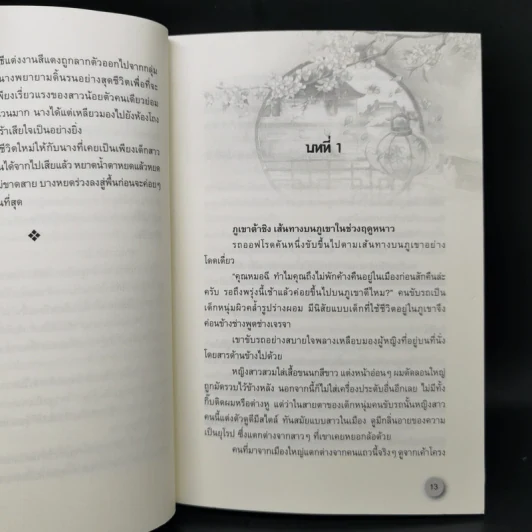 ชีแต่งงานสีแดงถูกลากตัวออกไปจากกลุ่ม
นางพยายามดิ้นรนอย่างสุดชีวิตเพื่อที่จะ
พียงเรี่ยวแรงของสาวน้อยตัวคนเดียวย่อม
วนมาก นางได้แต่เหลียวมองไปยังห้องโถง
ร้าเสียใจเป็นอย่างยิ่ง
ชีวิตใหม่ให้กับนางที่เคยเป็นเพียงเด็กสาว
นได้จากไปเสียแล้ว หยาดน้ำตาหยดแล้วหยด
ม่ขาดสาย บางหยดร่วงลงสู่พื้นก่อนจะค่อยๆ
นที่สุด
บทที่ 1
ภูเขาต้าชิง เส้นทางบนภูเขาในช่วงฤดูหนาว
รถออฟโรดคันหนึ่งขับขึ้นไปตามเส้นทางบนภูเขาอย่าง
โดดเดี่ยว
“คุณหมอฉี ทำไมคุณถึงไม่พักค้างคืนอยู่ในเมืองก่อนสักคืนล่ะ
ครับ รอถึงพรุ่งนี้เช้าแล้วค่อยขึ้นไปบนภูเขาดีไหม?” คนขับรถเป็น
เด็กหนุ่มผิวคล้ำรูปร่างผอม มีนิสัยแบบเด็กที่ใช้ชีวิตอยู่ในภูเขาจึง
ค่อนข้างช่างพูดช่างเจรจา
เขาขับรถอย่างสบายใจพลางเหลือบมองผู้หญิงที่อยู่บนที่นั่ง
โดยสารด้านข้างไปด้วย
หญิงสาวสวมใส่เสื้อขนนกสีขาว แต่งหน้าอ่อนๆ ผมดัดลอนใหญ่
ถูกมัดรวบไว้ข้างหลัง นอกจากนี้ก็ไม่ใส่เครื่องประดับอื่นอีกเลย ไม่มีทั้ง
กิ๊บติดผมหรือต่างหู แต่ว่าในสายตาของเด็กหนุ่มคนขับรถนั้นหญิงสาว
คนนี้แต่งตัวดูดีมีสไตล์ ทันสมัยแบบสาวในเมือง ดูมีกลิ่นอายของความ
เป็นยุโรป ซึ่งแตกต่างจากสาวๆ ที่เขาเคยหยอกล้อด้วย
คนที่มาจากเมืองใหญ่แตกต่างจากคนแถวนี้จริงๆ ดูจากเค้าโครง
13